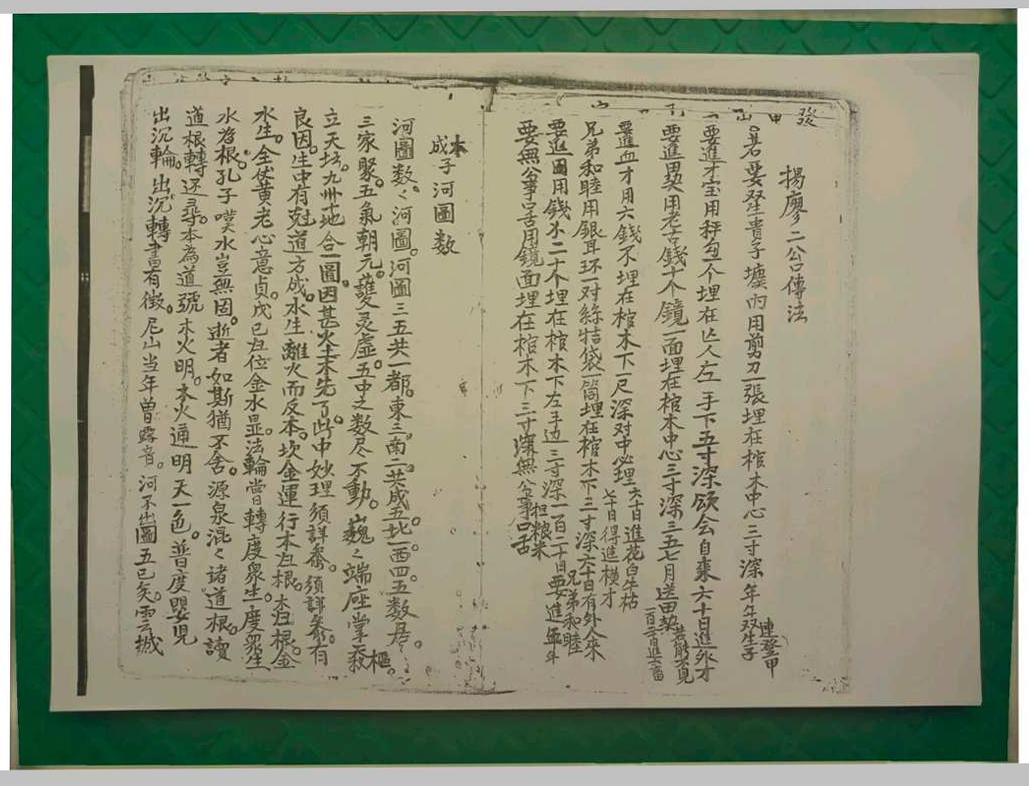 楊廖二公傳法
若要發貴子壙內用剪刀一張埋在棺木中心三寸深年年双生子連登甲
要進才宝用秤勾一个埋在亡人左手下五寸深欲会自来六十日進外才
要進田契用老古錢十个鏡一面埋在棺木中心三寸深三五七月送田契
要進血才用六錢不埋在棺木下一尺深对中心埋六十日進花白牛牯七十日得進横才
兄弟和睦用銀耳环一对絲袋一筒埋在棺木下三寸深六十日有外人来兄弟和睦
要進田用錢不二十个埋在棺木下左手边三寸深一百二十日要進担粮米
要無公事口舌用鏡面埋在棺木下三寸深無公事口舌
本
成子河圖数
河圖数々河圖河圖三五共一都東三南二共成五北一西四五数居
三家聚五氣朝元護灵虚五中之数尽不動巍之端座掌天樞
立天坛九州十地合一圖因甚火木未先了此中妙理須詳參須詳參有
良因生中有尅道方成水生離火而反本坎金運行木归根木归根金
水生全仗黄老心意貞戊已归位金水並法輪常轉度衆生度衆生
水為根孔子嘆水豈無固逝者如斯猶不舍源泉混々諸道根讀
道根轉还尋本為道號木火明木火通明天一色普度嬰児
出沉輪出沉轉書有徵尼山当年曾露音河不出圖五已矣雲城